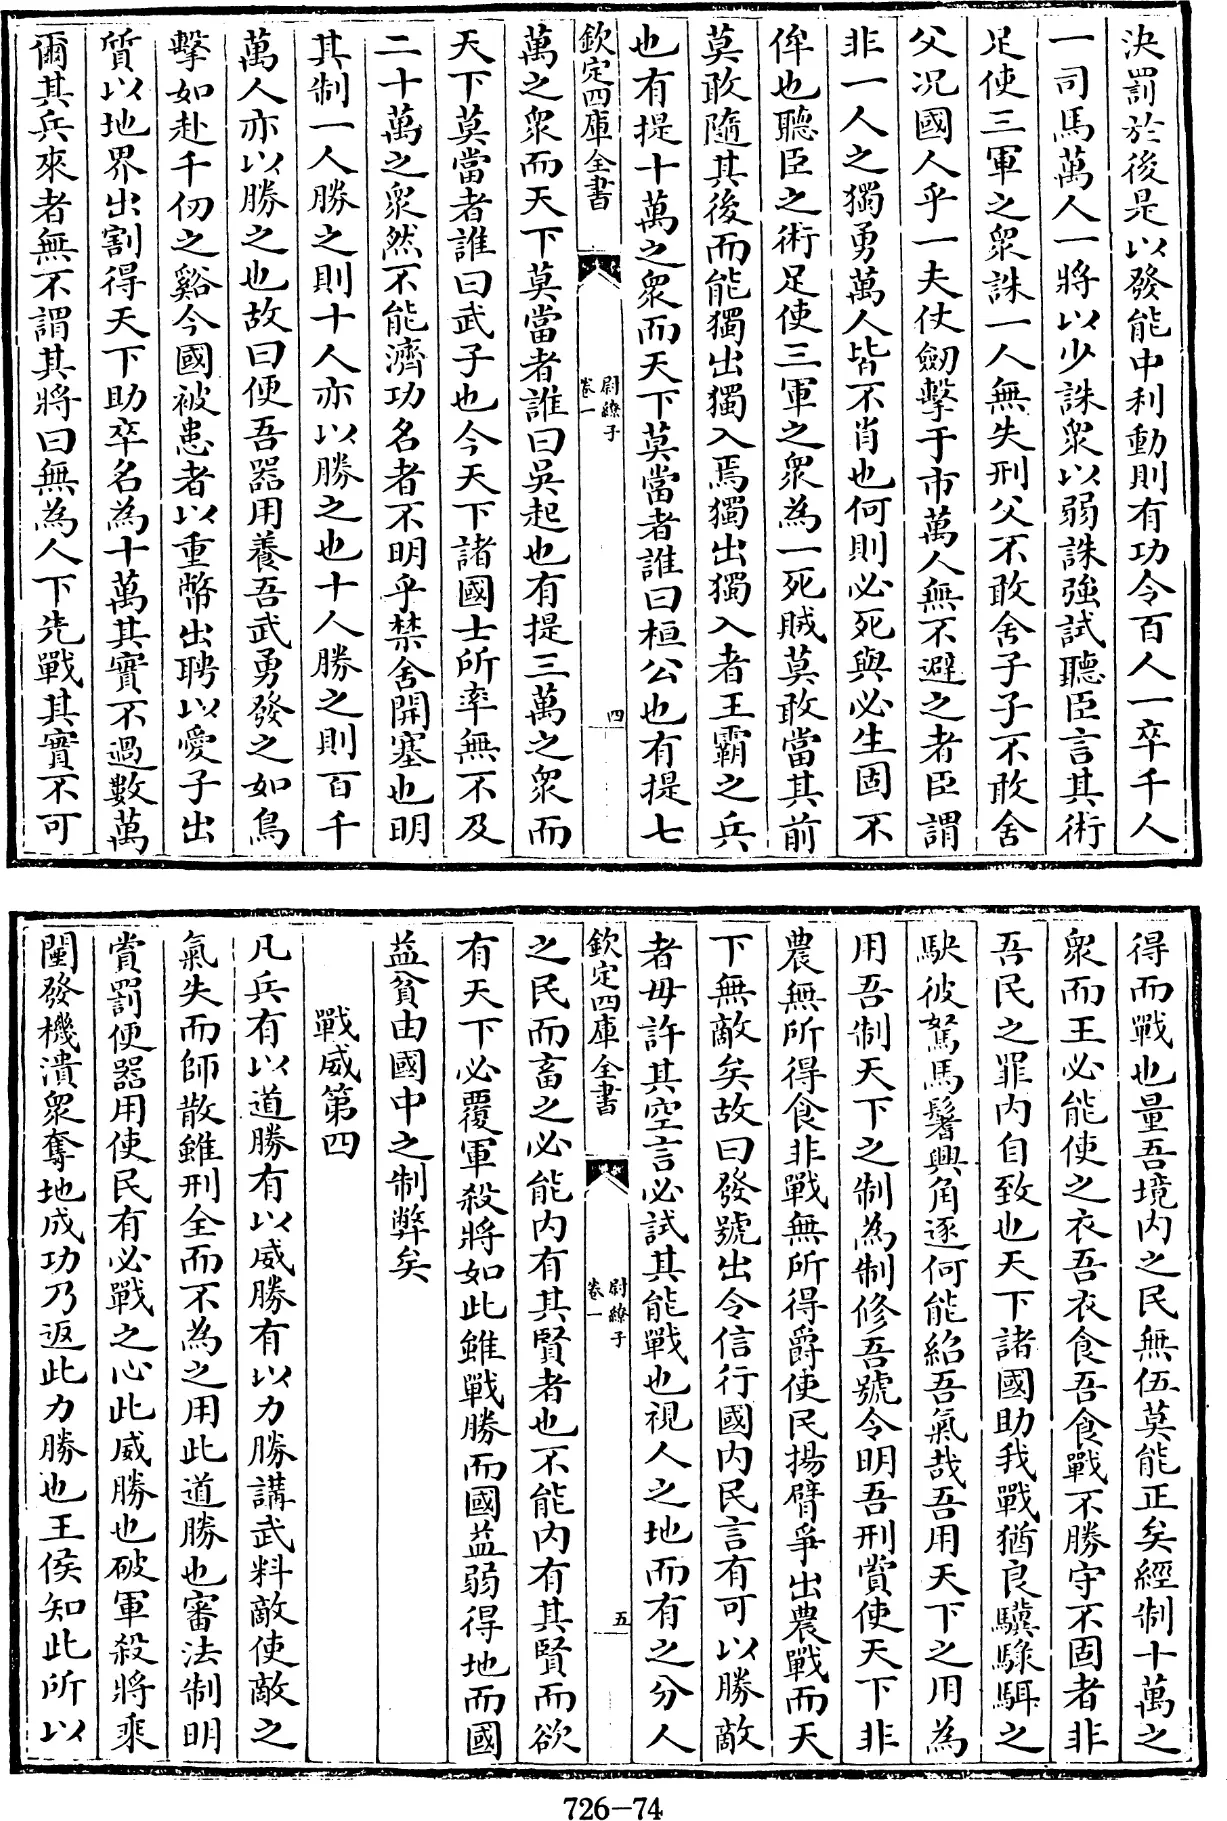 決罰於後是以發能中利動則有功令百人一卒千人
一司馬萬人一將以少誅衆以弱誅強試聽臣言其術
足使三軍之衆誅一人無失刑父不敢舍子子不敢舍
父况國人乎一夫仗劒擊于市萬人無不避之者臣謂
非一人之獨勇萬人皆不肖也何則必死與必生固不
侔也聽臣之術足使三軍之衆為一死賊莫敢當其前
莫敢隨其後而能獨出獨入焉獨出獨入者王霸之兵
也有提十萬之衆而天下莫當者誰曰桓公也有提七
欽定四庫全書
尉繚子
卷一
四
萬之衆而天下莫當者誰曰吳起也有提三萬之衆而
天下莫當者誰曰武子也今天下諸國士所率無不及
二十萬之衆然不能濟功名者不明乎禁舍開塞也明
其制一人勝之則十人亦以勝之也十人勝之則百千
萬人亦以勝之也故曰便吾器用養吾武勇發之如鳥
擊如赴千仞之谿今國被患者以重幣出聘以愛子出
質以地界出割得天下助卒名為十萬其實不過數萬
爾其兵來者無不謂其將曰無為人下先戰其實不可
得而戰也量吾境内之民無伍莫能正矣經制十萬之
衆而王必能使之衣吾衣食吾食戰不勝守不固者非
吾民之罪内自致也天下諸國助我戰猶良驥騄駬之
駃彼駑馬鬐興角逐何能紹吾氣哉吾用天下之用為
用吾制天下之制為制修吾號令明吾刑賞使天下非
農無所得食非戰無所得爵使民揚臂爭出農戰而天
下無敵矣故曰發號出令信行國内民言有可以勝敵
者毋許其空言必試其能戰也視人之地而有之分人
欽定四庫全書
尉繚子
卷一
五
之民而畜之必能内有其賢者也不能内有其賢而欲
有天下必覆軍殺將如此雖戰勝而國益弱得地而國
益貧由國中之制弊矣
戰威第四
凡兵有以道勝有以威勝有以力勝講武料敵使敵之
氣失而師散雖刑全而不為之用此道勝也審法制明
賞罰便器用使民有必戰之心此威勝也破軍殺將乘
闉發機潰衆奪地成功乃返此力勝也王侯知此所以
726-74